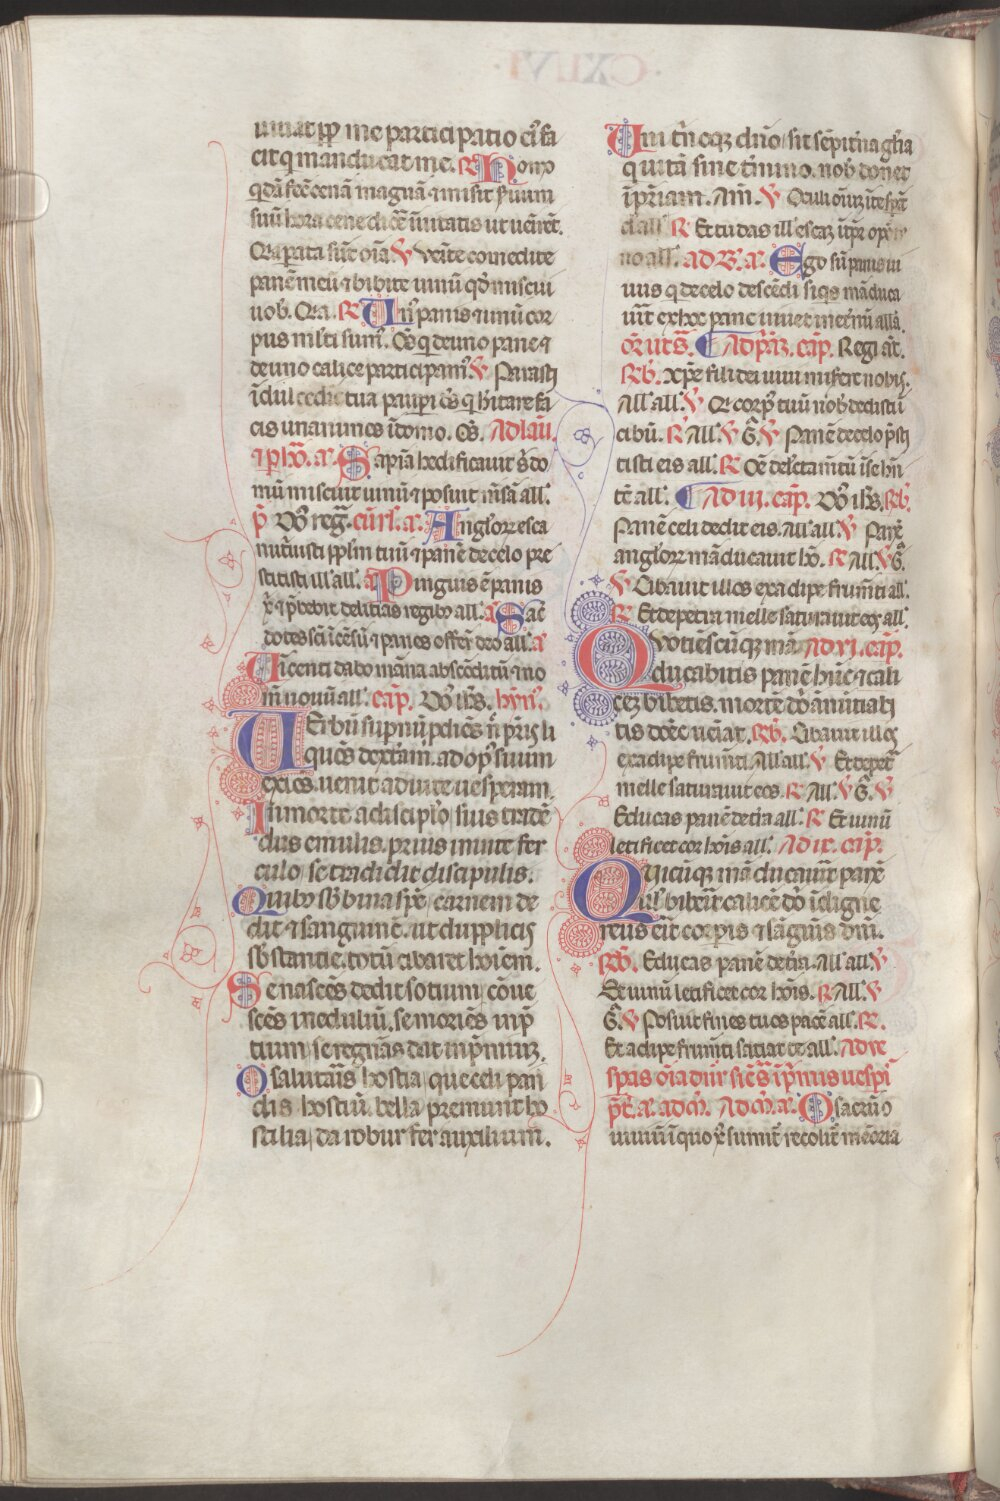 uiuat ꝓp̄ me participatio ei᷒ fa
cit q manducat me. R Homo
qdā fec̄ cenā magnā ⁊ misit ẜuum
suū hora cene dicẽ īuitatis ut uēirēt.
Q̄a parata sūt oīa. V Venite comedite
panē meū ⁊ bibite uinū qđ miscui
uob. Q̄a. R Un᷒ panis ⁊ unū cor
pus ml̓ti sum᷒. Oēs q de uno pane ⁊
de uno calice participam᷒. V Parasti
ī dulcedīe tua paup̄i ds̄ q hitare fa
cis unanimes ī domo. Oēs. Ad lau.
⁊ p hōr. a Sapīa hedificauit s̓ do
mū miscuit uinū ⁊ posuit mēsā all̓.
p̄ Dn̄s reg̃. cūrl. a. Angl̓oꝝ esca
nutriuisti ppl̓m tuū ⁊ panē de celo pre
stitisti ill̓ all̓. a Pinguis ē panis
xp̄i ⁊ p̄bebit delitias regib᷒ all̓. a Sac̄
dotes sc̄i īcēsū ⁊ panes offer̄t deo all̓. a
Uicenti dabo māna abscōditū ⁊ no
m̄ nouū all̓. cap̄. Dn̄s ih̄s. hȳn᷒.
Uerbū supnū p̄diēs n̄ pr̄is li
quēs dext̄am. ad op᷒ suum
exiēs. uenit ad uite uesperam.
In morte a discipl̓o suis trade
dus emulis. prius in uite fer
culo se tradidit discipulis.
Quib᷒ sb̓ bina spē carnem de
dit ⁊ sanguinē. ut dupplicis
sb̓stantie. totū cibaret hoīem.
Se nascēs dedit sotium cōue
scēs in eduliū. se moriēs in p̄
tium se regnās dat in p̄miuꝫ.
O salutaris hostia que celi pan
dis hostiū. bella premunt ho
stilia, da robur fer auxilium.
Uni tⁱnoqꝫ dn̄o sit sēpit̄na gl̓ia
q uitā sine t̄mino. nob̓ donet
ī pr̄iam. Am̄. V Oculi om̄iuꝫ ī te spāt
d. all̓. R Et tu das ill̓ escaꝫ ī tp̄r opor̄tu
no all̓. ad B. a. Ego sū panis ui
uus q de celo descēdi siqs mādūca
uīt ex hoc pane uiuet in et̄nū all̓a.
or̄. ut s̄. Ad p̄aꝫ. cap̄. Regi āt.
Rb. Xp̄e fili dei uiui miserē nobis.
All̓ all̓. V Q̄ corp᷒ tuū nob̓ dedisti ī
cibū. R All̓. V G̃. V Panē de celo p̄sti
tisti eis all̓. R Oē delectam̄tū ī se hn̄
tē all̓. Ad iii. cap̄. Dn̄s ih̄s. Rb.
Panē celi dedit eis. All̓ all̓. V Panē
angl̓oꝝ māducauit hō. R All̓. V G̃.
V Cibauit illos ex adipe frum̄ti all̓.
R Et de petra melle saturauit eos all̓.
Quotiescūqꝫ mā Ad vi. cap̄.
ducabitis panē hūc ⁊ cali
cez bibetis. mortē dn̄i ānūtiabi
tis donec ueīat. Rb. Cibauit illos
ex adipe frum̄ti. All̓ all̓. V Et de pet̄
melle saturauit eos. R All̓. V G̃. V
Educas panē de t̄ra all̓. R Et uinū
letificet cor hoīs all̓. Ad ix. cap̄.
Quicūqꝫ māducauīt panē
uel̓ bib̄eit calicē dn̄i īdigne
reus eīt corporis ⁊ sāguīs dn̄i.
Rb. Educas panē de t̄ra. All̓ all̓. V
Et uinū letificet cor hoīs. R All̓. V
G̃. V Posuit fines tuos pacē all̓. R.
Et adipe frum̄ti satiat te all̓. Ad ue
spas oīa dn̄r sic̄ ī p̄mis uesp̄i
p̄t. a. ad m̄. Ad m̄. a. O sacrū ꝯ
uiuiū ī quo xp̄s sumit᷒ recolit᷒ mēoria